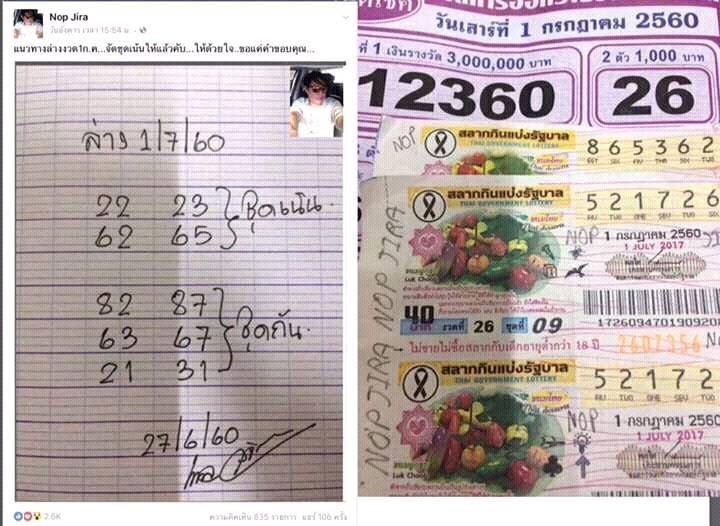 Nop Jira
วันอังคาร เวลา 15:54 น.
แนวทางล่างงวด1ก.ค...จัดชุดเน้นให้แล้วคับ...ให้ด้วยใจ..ขอแค่คำขอบคุณ...
ล่าง 1/7/60
22 23
62 65
ชุดเน้น
82 87
63 67
21 31
ชุดกัน
27/6/60
2.6K
ความคิดเห็น 835 รายการ แชร์ 106 ครั้ง
วันเสาร์ที่ 1 กรกฎาคม 2560
ที่ 1 เงินรางวัล 3,000,000 บาท
2 ตัว 1,000 บาท
12360
26
NOP
สลากกินแบ่งรัฐบาล
THAI GOVERNMENT LOTTERY
8 6 5 3 6 2
EGT SIX FIV THR SIX TWO
สลากกินแบ่งรัฐบาล
THAI GOVERNMENT LOTTERY
ขนมไทย
Thai desserts
5 2 1 7 2 6
FIV TWO ONE SEV TWO
NOP
1 กรกฎาคม 2560
1 JULY 2017
Luk Choop
40
บาท
งวดที่ 26 ชุดที่ 09
1726094701909208
ไม่ขายไม่ซื้อสลากกับเด็กอายุต่ำกว่า 18 ปี
NOP JIRA NOP JIRA
สลากกินแบ่งรัฐบาล
THAI GOVERNMENT LOTTERY
ขนมไทย
Thai desserts
5 2 1 7 2
FIV TWO ONE SEV TWO
NOP
1 กรกฎาคม 2560
1 JULY 2017
Luk Choop